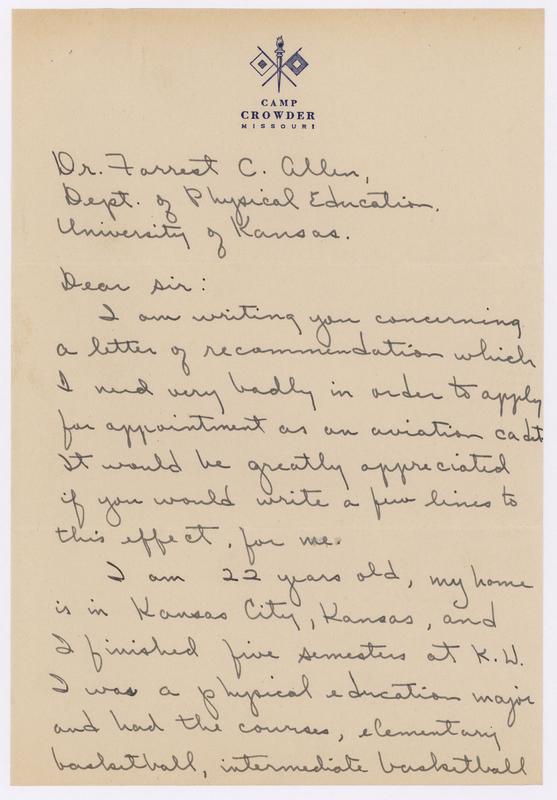 CAMP
CROWDER
MISSOURI
Dr. Forrest C. Allen,
Dept. of Physical Education.
University of Kansas.
Dear sir:
I am writing you concerning
a letter of recommendation which
I need very badly in order to apply
for appointment as an aviation cadet.
It would be greatly appreciated
if you would write a few lines to
this effect, for me.
I am 22 years old, my home
is in Kansas City, Kansas, and
I finished five semesters at K.U.
I was a physical education major
and had the courses, elementary
basketball, intermediate basketball